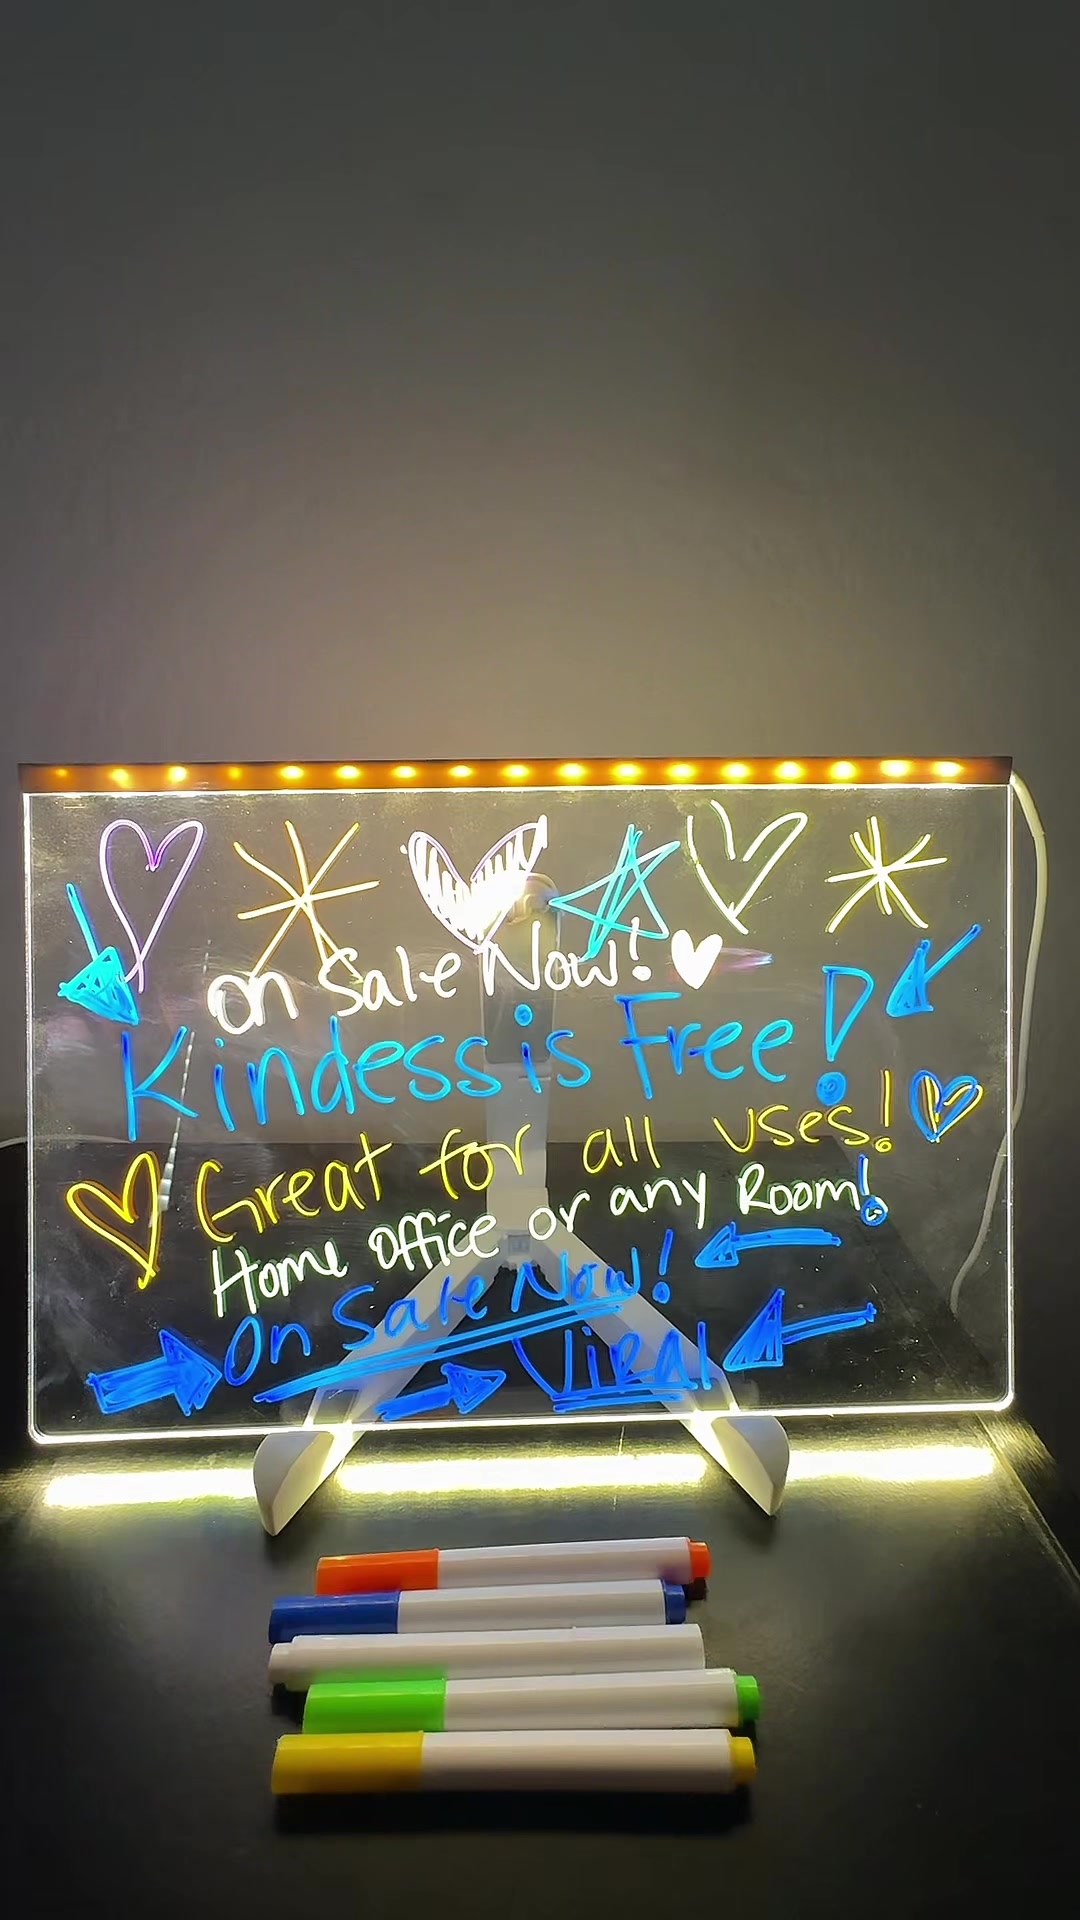 on Sale Now!
Kindess is Free!
Great for all uses!
Home office or any Room!
On Sale Now!
ViRAl